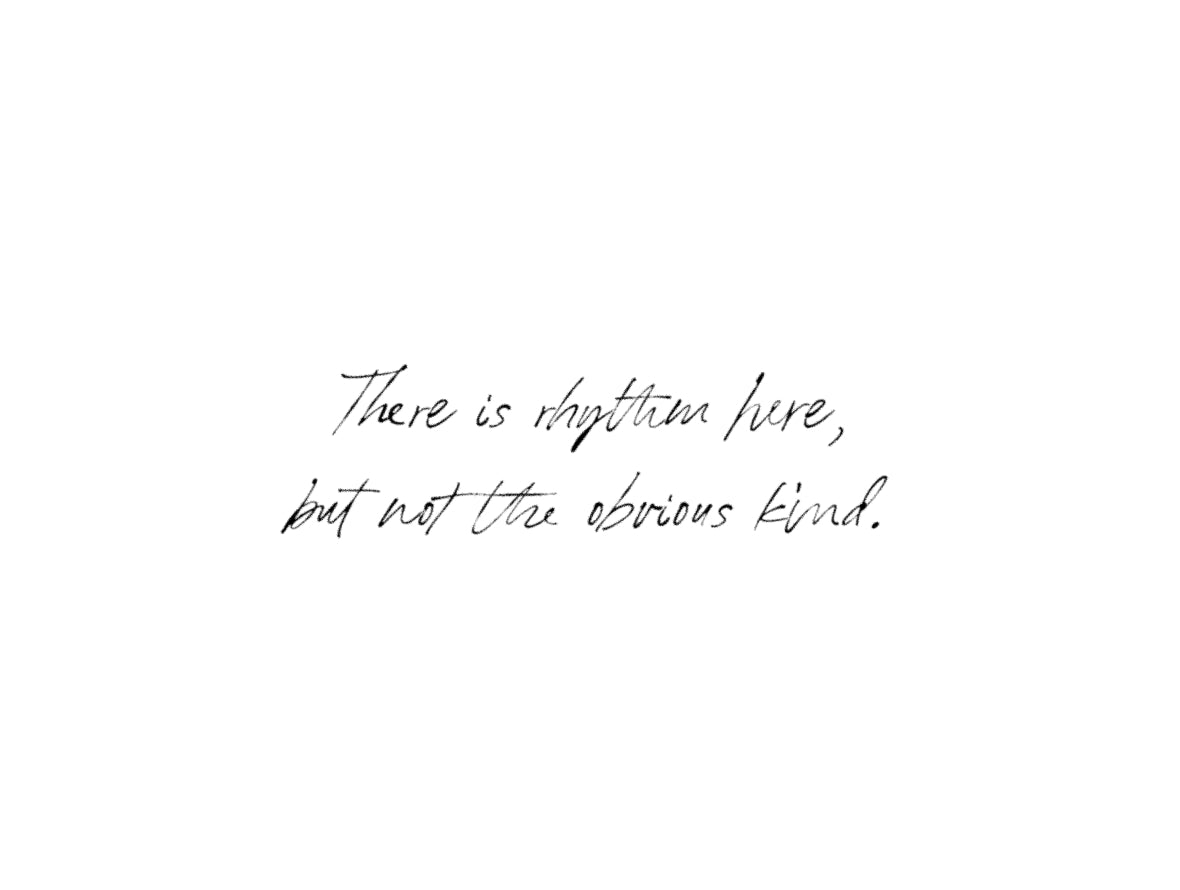 There is rhythm here,
but not the obvious kind.